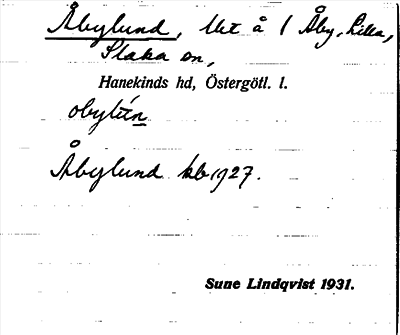 Åbylund, lht å 1 Åby, Lilla,
Slaka sn,
Hanekinds hd, Östergötl. l.
Åbylund kb 1927.
Sune Lindqvist 1931.